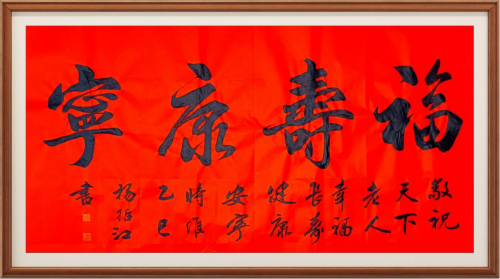 福壽康寧
敬祝
天下
老人
幸福
長壽
健康
安寧
時維
乙巳
楊柏江
書